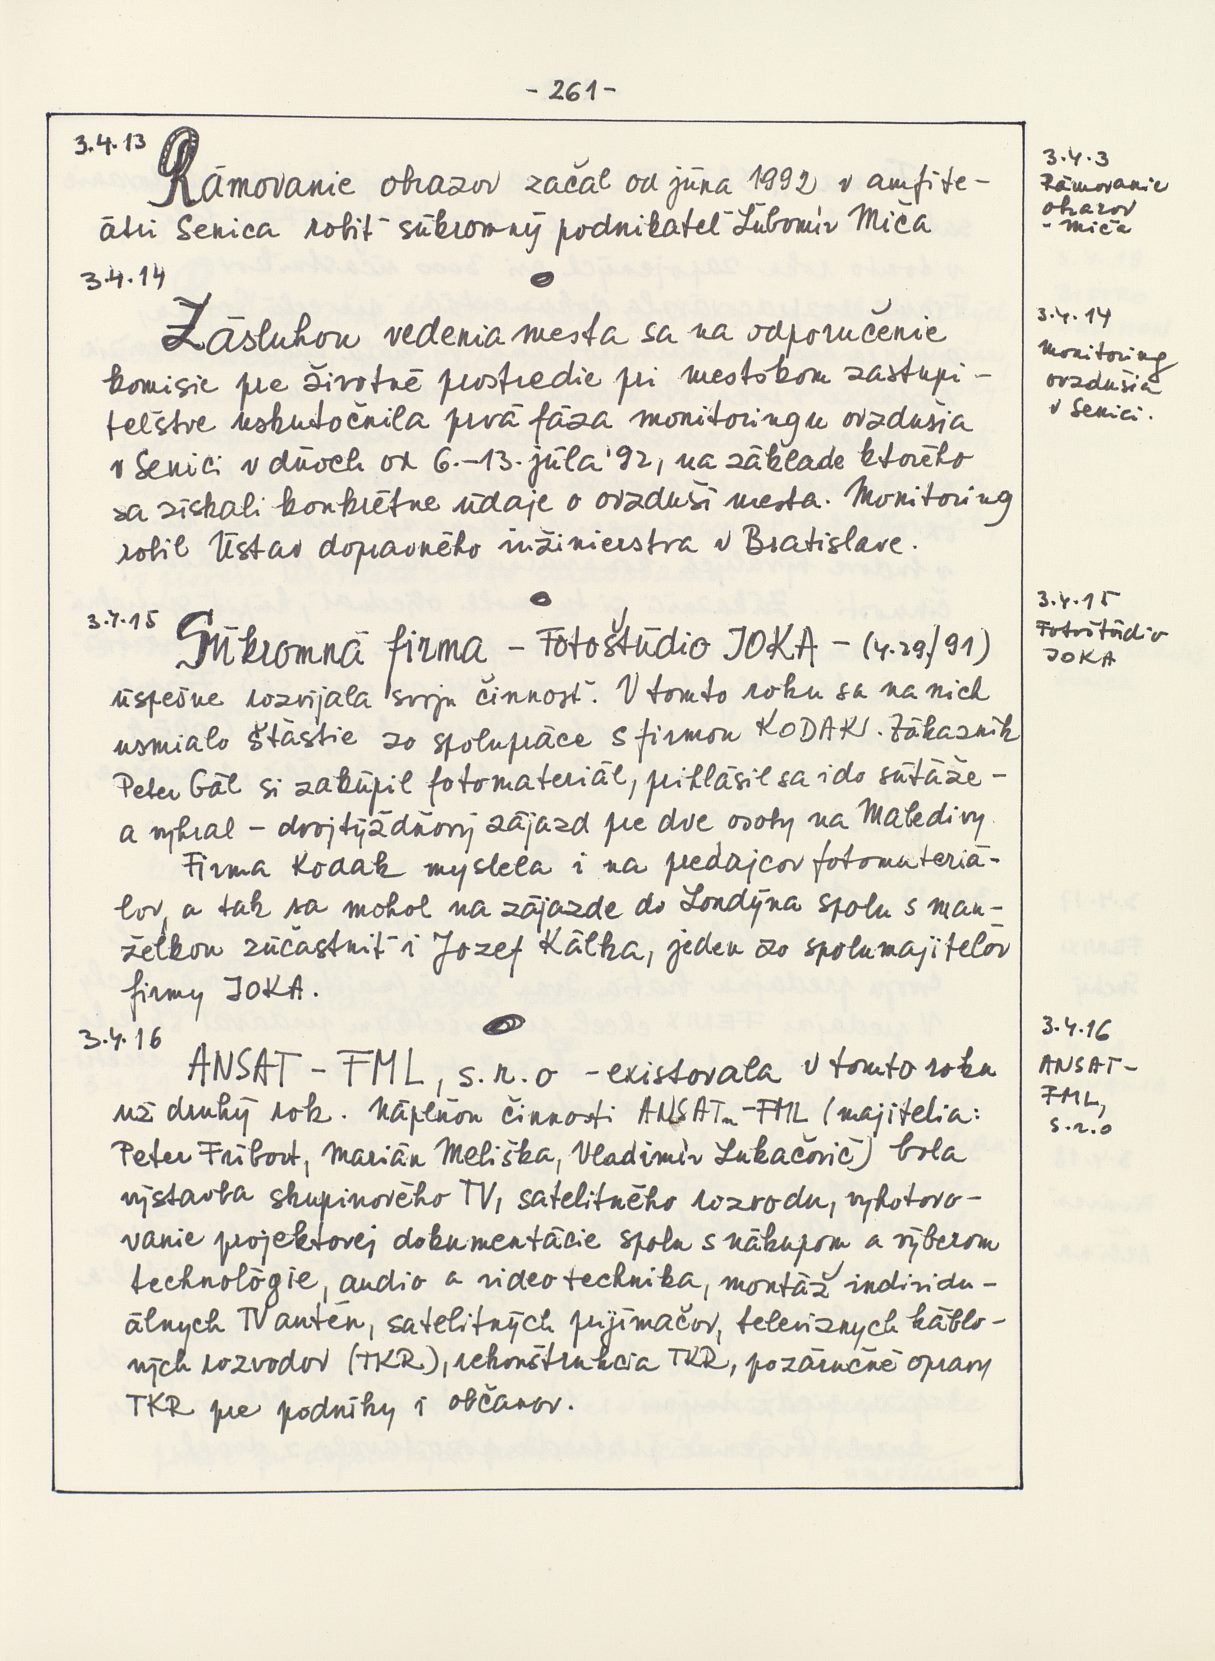 - 261 -
3.4.13
Rámovanie obrazov začal od júna 1992 v amfite-
átri Senica robiť súkromný podnikateľ Ľubomír Miča
3.4.3
Rámovanie
obrazov
- Miča
3.4.14
Zásluhou vedenia mesta sa na odporučenie
komisie pre životné prostredie pri mestskom zastupi-
teľstve uskutočnila prvá fáza monitoringu ovzdusia
v Senici v dňoch od 6.-13. júla '92, na základe ktorého
sa získali konkrétne údaje o ovzduší mesta. Monitoring
robil Ústav dopravného inžinierstva v Bratislave.
3.4.14
monitoring
ovzdušia
v Senici.
3.4.15
Súkromná firma - Fotoštúdio JOKA - (4.29/91)
úspešne rozvíjala svoju činnosť. V tomto roku sa na nich
usmialo šťastie zo spolupráce s firmou KODAK. Zákazník
Peter Gál si zakúpil fotomateriál, prihlásil sa i do súťaže -
a vyhral - dvojtýždňový zájazd pre dve osoby na Maledivy
Firma Kodak myslela i na predajcov fotomateriá-
lov, a tak sa mohol na zájazde do Londýna spolu s man-
želkou zúčastniť i Jozef Kálka, jeden zo spolumajiteľov
firmy JOKA.
3.4.15
Fotoštúdio
JOKA
3.4.16
ANSAT - FML, s.r.o - existovala v tomto roku
už druhý rok. Náplňou činnosti ANSATu-FML (majitelia:
Peter Fribort, Marián Meliška, Vladimír Lukačovič) bola
výstavba skupinového TV, satelitného rozvodu, vyhotovo-
vanie projektovej dokumentácie spolu s nákupom a výberom
technológie, audio a videotechnika, montáž individu-
álnych TV antén, satelitných prijímačov, televiznych káblo-
vých rozvodov (TKR), rekonštrukcia TKR, pozáručné opravy
TKR pre podniky i občanov.
3.4.16
ANSAT-
FML,
s.r.o